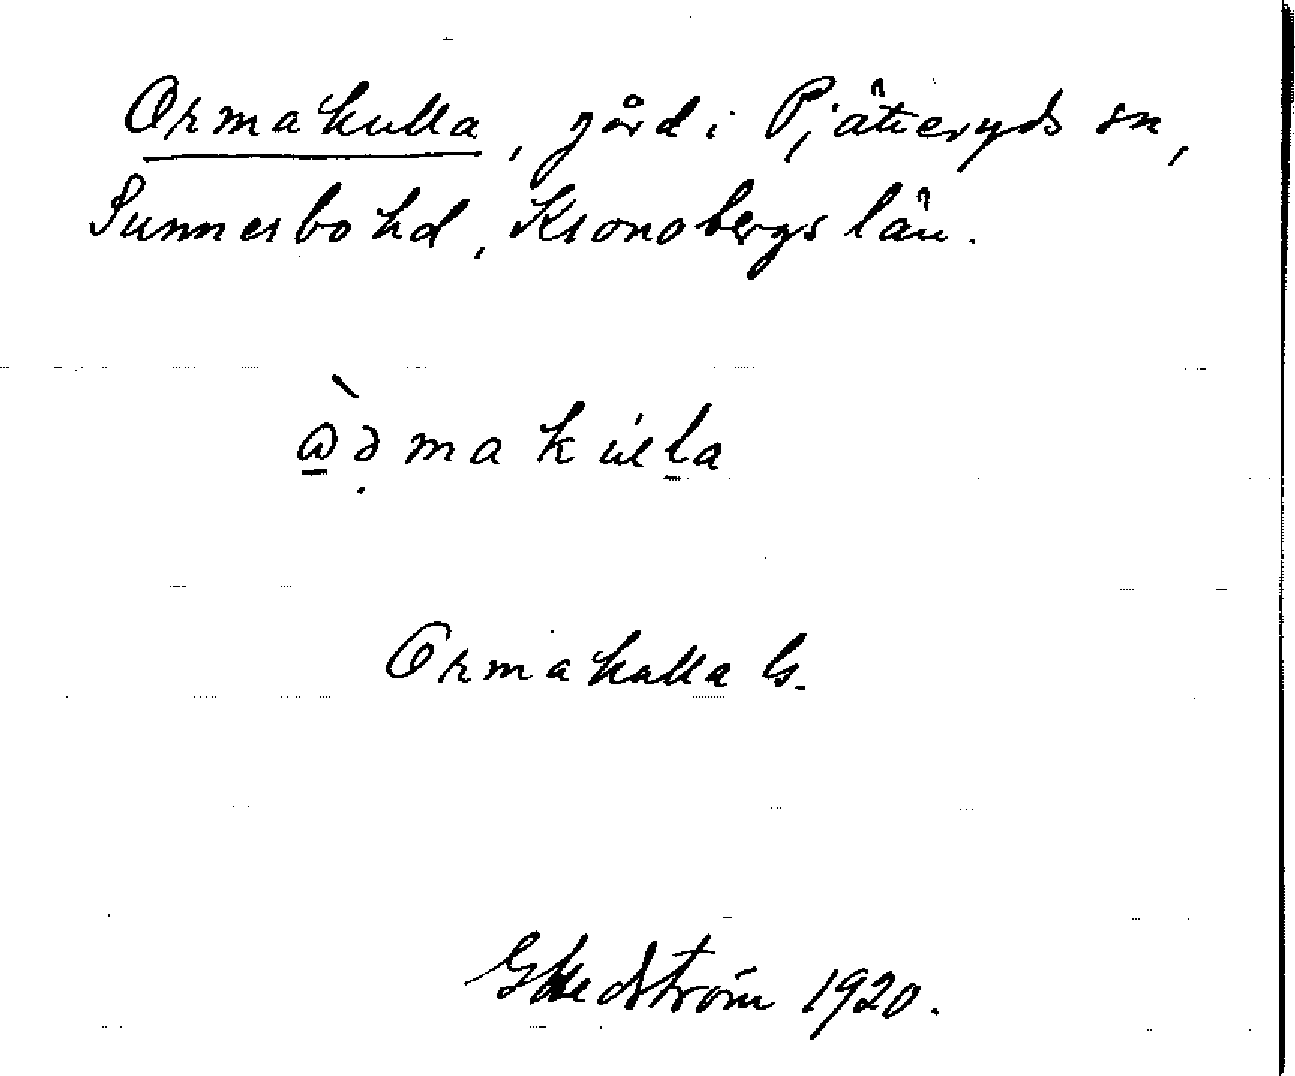 Ormakulla, gård i Pjätteryds sn,
Sunnerbo hd, Kronobergs län.
Ormakulla G.
G Hedström 1920.